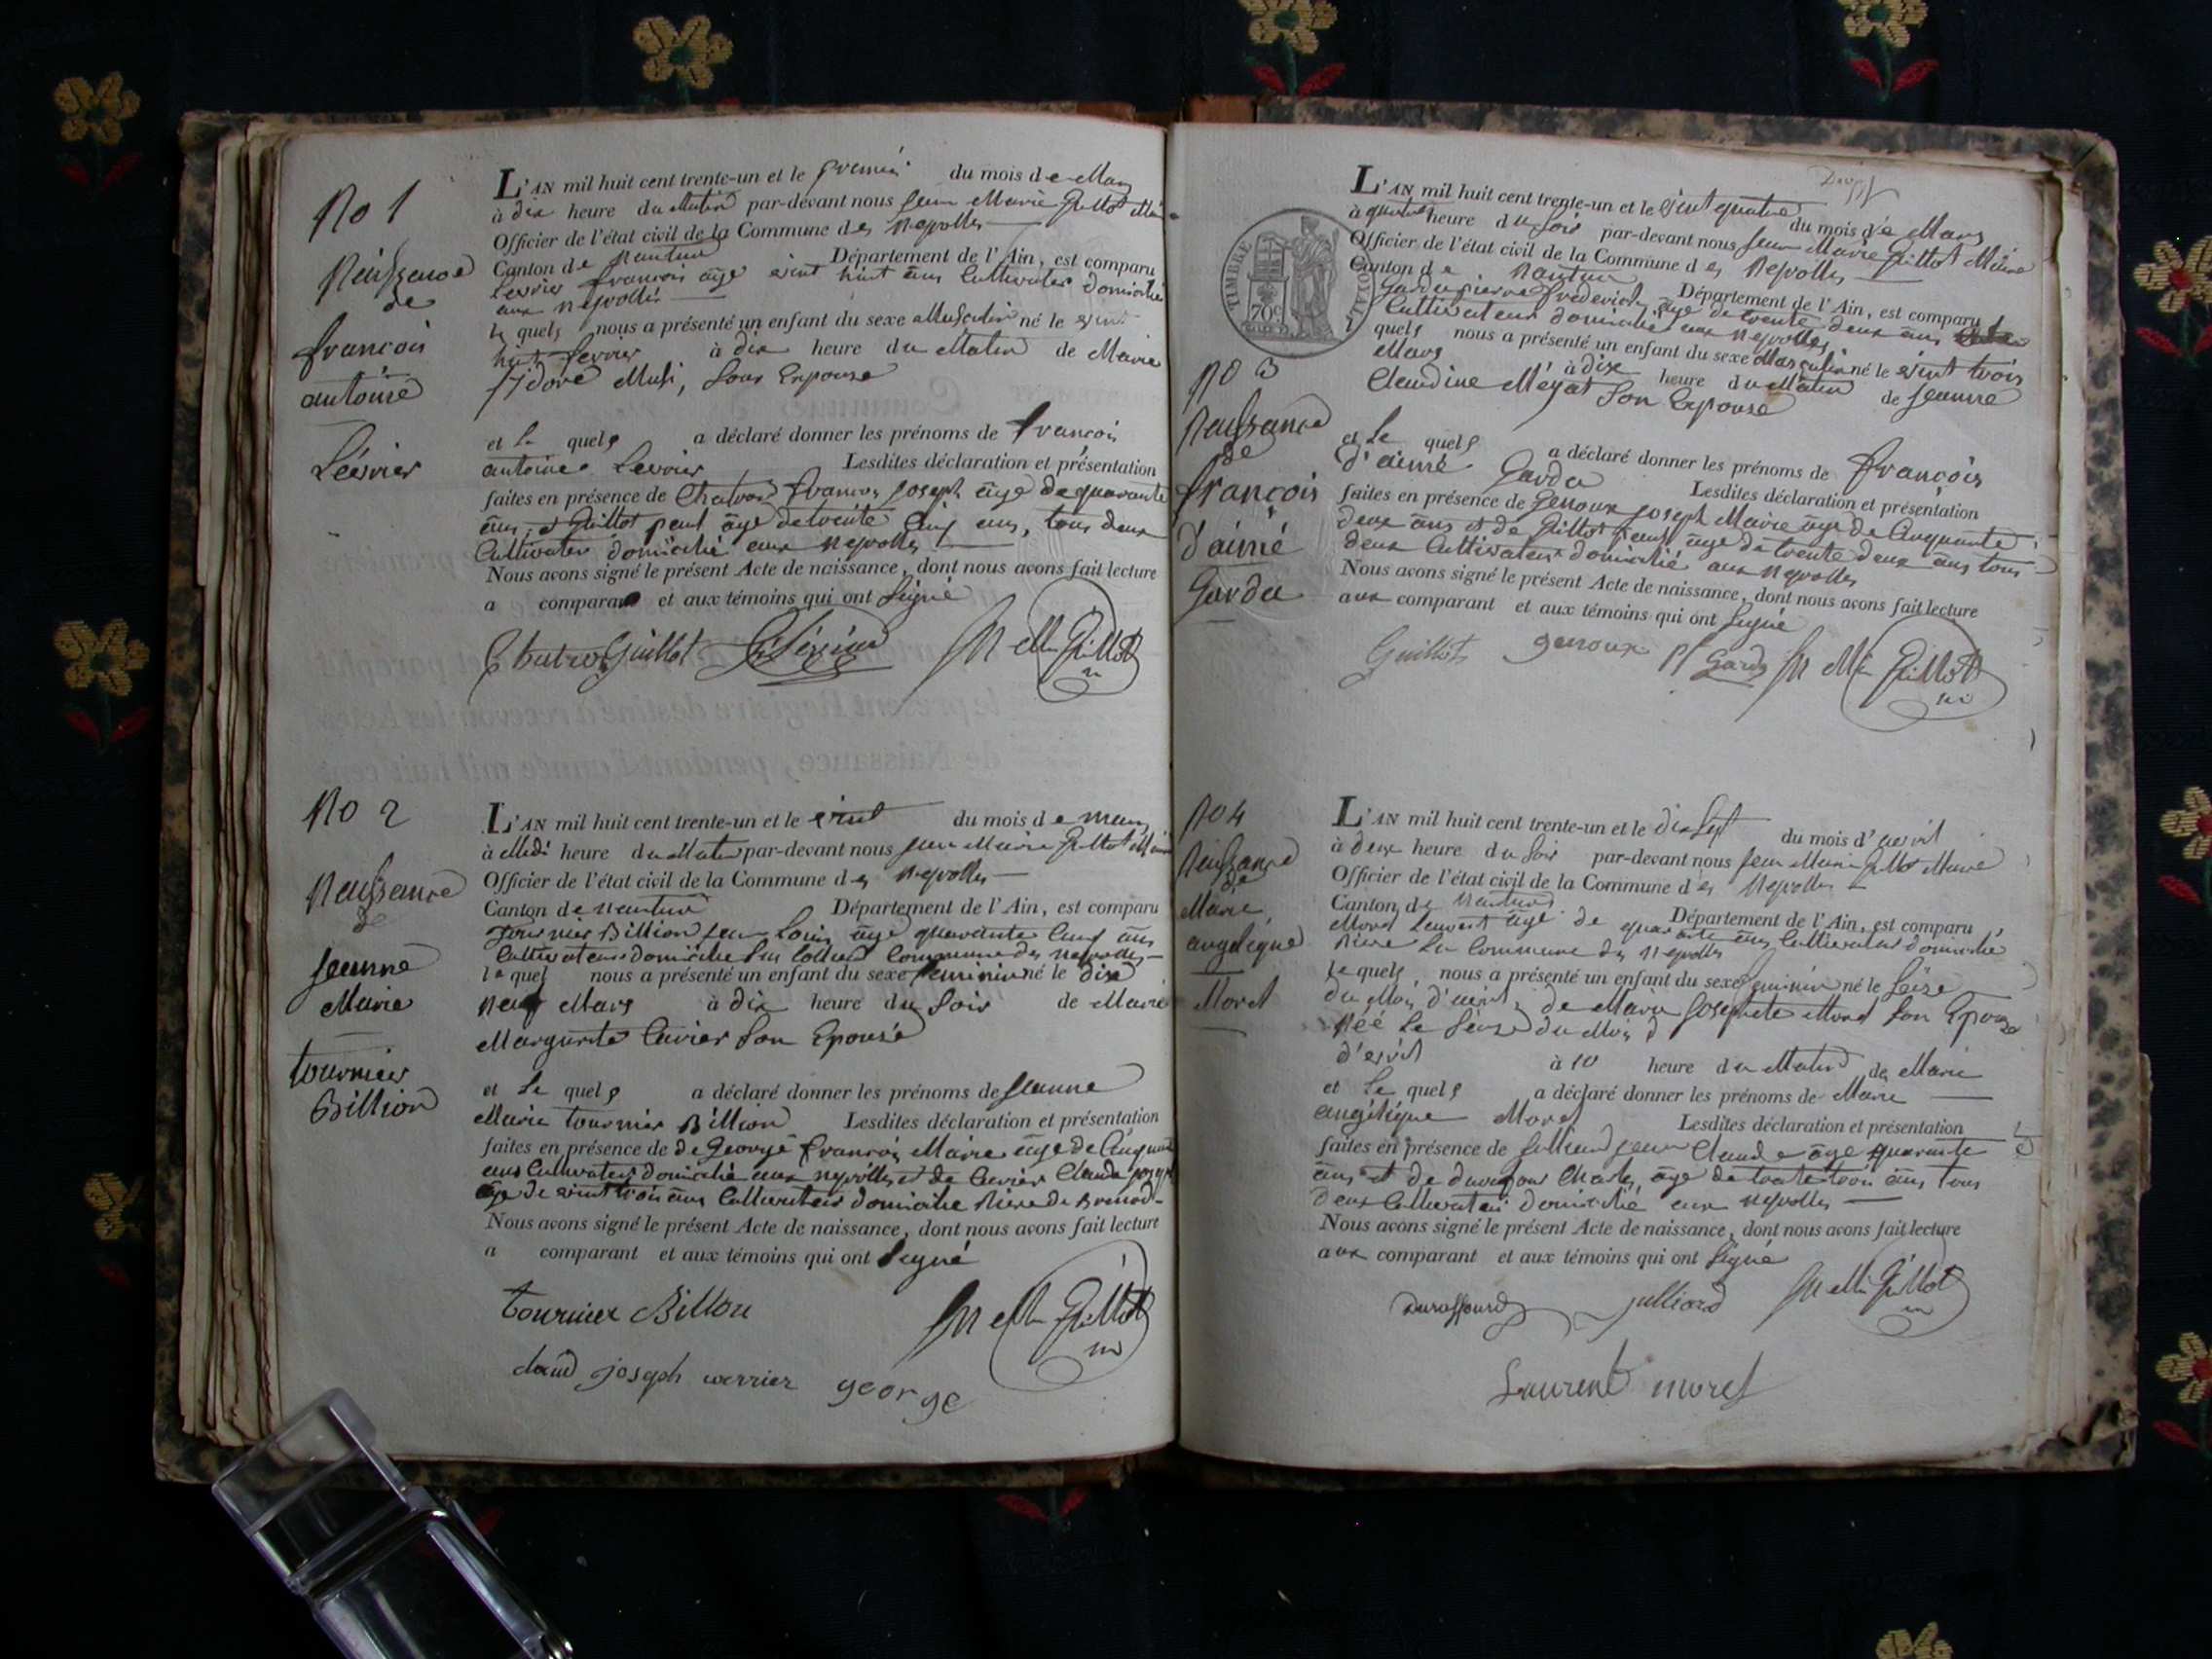 No 1
Naissance
de
françois
antoine
Lévrier
L'AN mil huit cent trente-un et le premier du mois de Mars
à dix heure du Matin par-devant nous Jean Marie Guillot Maire
Officier de l'état civil de la Commune des Neyrolles
Canton de Nantua Département de l'Ain, est comparu
Levrier françois âge vint huit ans Cultivateur domicilié
aux Neyrolles
le quels nous a présenté un enfant du sexe Masculin né le vint
huit fevrier à dix heure du Matin de Marie
Isidore Musi, son Epouse
et Le quels a déclaré donner les prénoms de françois
antoine Levrier Lesdites déclaration et présentation
faites en présence de Chatron françois Joseph âge de quarante
ans, et Guillot paul âge de trente Cinq ans, tous deux
Cultivateur domicilié aux Neyrolles
Nous avons signé le présent Acte de naissance, dont nous avons fait lecture
a comparant et aux témoins qui ont Signé
Guillot Jn Mie Guillot
No 2
Naissance
de
Jeanne
Marie
tournier
Billion
L'AN mil huit cent trente-un et le vint du mois de mars
à Midi heure du Matin par-devant nous Jean Marie Guillot Maire
Officier de l'état civil de la Commune des Neyrolles
Canton de Nantua Département de l'Ain, est comparu
tournier Billion Jean Louis âge quarante Cinq ans
Cultivateur domicilié Commune des Neyrolles
le quel nous a présenté un enfant du sexe feminin né le dix
neuf Mars à dix heure du Soir de Marie
Marguerite Cavier son Epouse
et Le quels a déclaré donner les prénoms de Jeanne
Marie tournier Billion Lesdites déclaration et présentation
faites en présence de de George françois Marie âge de Cinquante
ans Cultivateur domicilié aux neyrolles et de Claude joseph
âge de vint trois ans Cultivateur domicilié Rière de Brenod
Nous avons signé le présent Acte de naissance, dont nous avons fait lecture
a comparant et aux témoins qui ont Signé
tournier Billion Jn Mie Guillot
claud joseph george
TIMBRE ROYAL
70c
L'AN mil huit cent trente-un et le vint quatre du mois de Mars
à quatre heure du Soir par-devant nous Jean Marie Guillot Maire
Officier de l'état civil de la Commune des Neyrolles
Canton de Nantua Département de l'Ain, est comparu
Garda pierre frederich âge de trente deux ans
Cultivateur domicilié aux Neyrolles
quels nous a présenté un enfant du sexe Masculin né le vint trois
Mars à dix heure du Matin de Jeanne
Claudine Mégat Son Epouse
et Le quels a déclaré donner les prénoms de françois
d'aimé Garda Lesdites déclaration et présentation
faites en présence de Genoux joseph Marie âge de Cinquante
deux ans et de Guillot paul âge de trente deux ans tous
deux Cultivateur domicilié aux Neyrolles
Nous avons signé le présent Acte de naissance, dont nous avons fait lecture
aux comparant et aux témoins qui ont Signé
Guillot genoux Pf Garda Jn Mie Guillot
No 3
Naissance
de
françois
d'aimé
Garda
No 4
Naissance
de
Marie
angelique
Moret
L'AN mil huit cent trente-un et le dix Sept du mois d'avril
à deux heure du Soir par-devant nous Jean Marie Guillot Maire
Officier de l'état civil de la Commune des Neyrolles
Canton de Nantua Département de l'Ain, est comparu
Moret Laurent âge de quarante ans Cultivateur domicilié
Rière La Commune des Neyrolles
Le quels nous a présenté un enfant du sexe feminin né le Seize
du Mois d'avril, de Marie Josephete Moret Son Epouse
Néé Le Seize du Mois d
d'avril à 10 heure du Matin de Marie
et Le quels a déclaré donner les prénoms de Marie
angélique Moret Lesdites déclaration et présentation
faites en présence de julliard jean Claude âge quarante
ans et de Charles âge de trente trois ans tous
deux Cultivateur domicilié aux Neyrolles
Nous avons signé le présent Acte de naissance, dont nous avons fait lecture
aux comparant et aux témoins qui ont Signé
Duraffourd julliard Jn Mie Guillot
Laurent moret